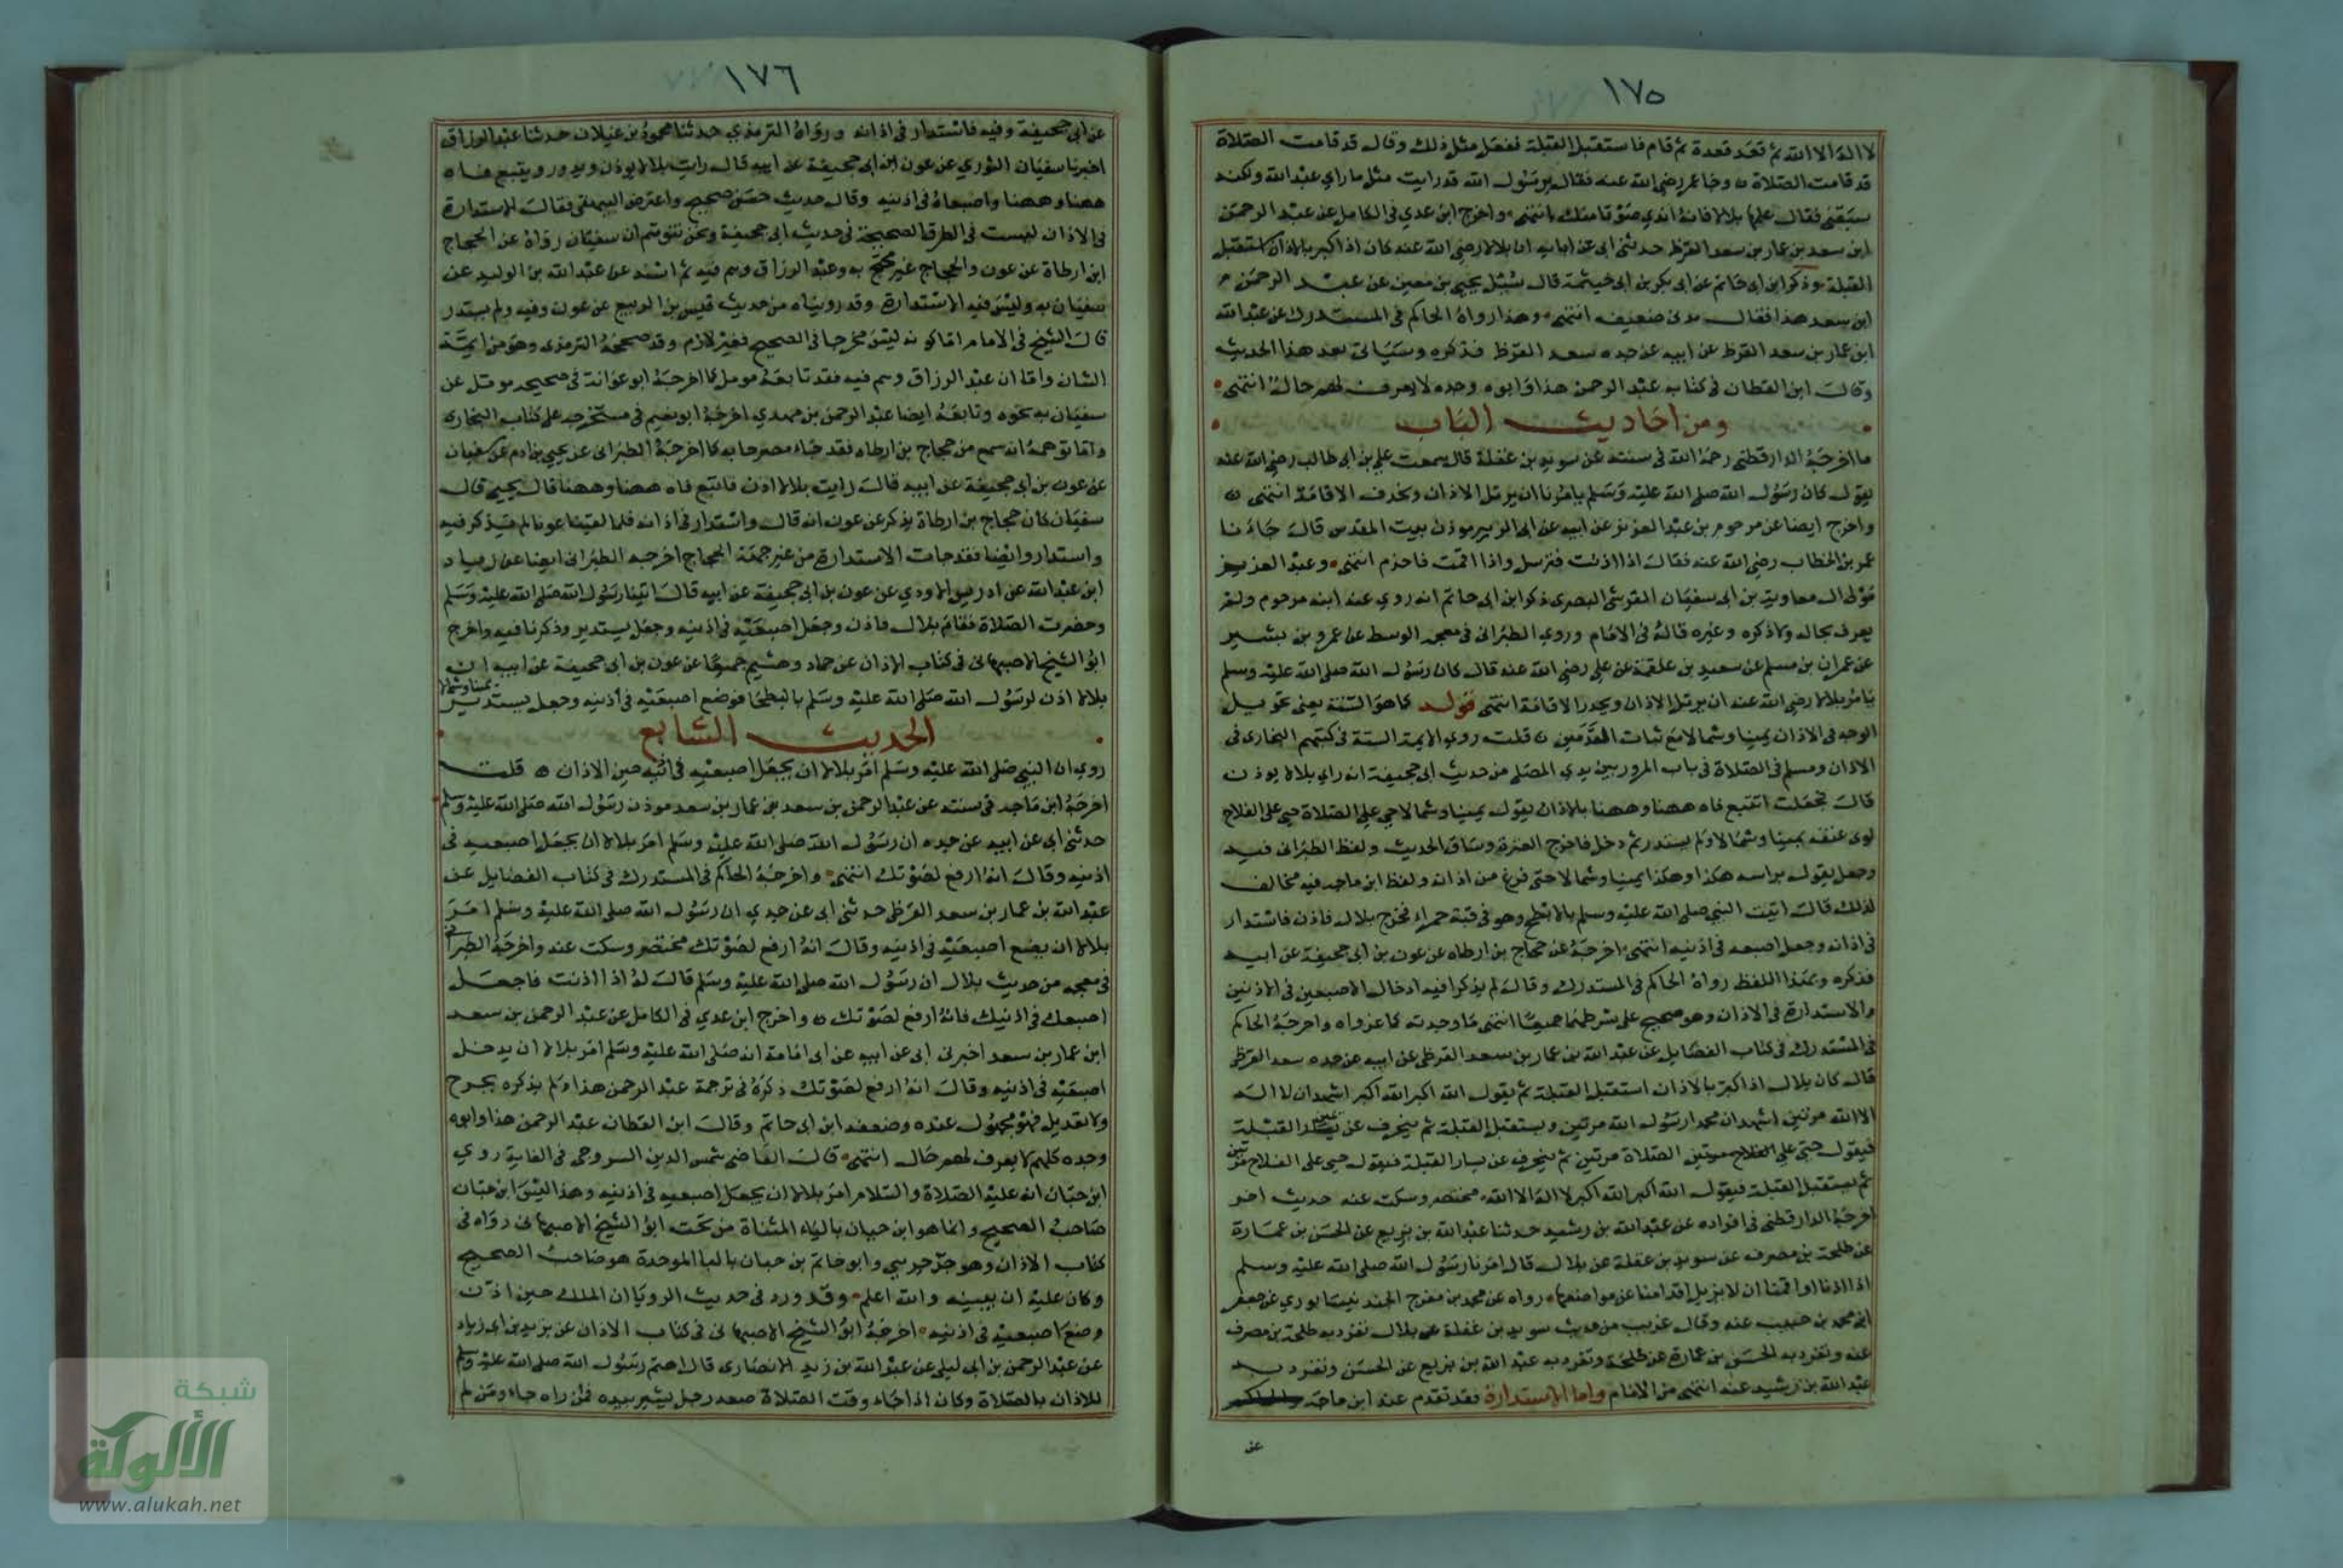 ١٧٥
لا اله الا الله ثم قعد قعدة ثم قام فاستقبل القبلة ففعل مثل ذلك وقال قد قامت الصلاة
قد قامت الصلاة وجا عمر رضي الله عنه فقال يرسول الله قد رايت مثل ما راي عبد الله ولكنه
سبقني فقال علمها بلالا فانه اندي صوتا منك انتهى واخرج ابن عدي في الكامل عن عبد الرحمن
ابن سعد بن عمار بن سعد القرظ حدثني ابي عن ابايه ان بلالا رضي الله عنه كان اذا كبر بالاذان استقبل
القبلة وذكر ابن ابي حاتم عن ابي بكر بن ابي خيثمة قال سئل يحيى بن معين عن عبد الرحمن
ابن سعد هذا فقال مدني ضعيف انتهى وهذا رواه الحاكم في المستدرك عن عبد الله
ابن عمار بن سعد القرظ عن ابيه عن جده سعد القرظ فذكره وسياتى بعد هذا الحديث
وقال ابن القطان في كتابه عبد الرحمن هذا وابوه وجده لا يعرف لهم حالة انتهى
ومن احاديث الباب
ما اخرجه الدارقطني رحمه الله في سننه عن سويد بن غفلة قال سمعت علي بن ابي طالب رضي الله عنه
يقول كان رسول الله صلى الله عليه وسلم يامرنا ان نرتل الاذان ونحذف الاقامة انتهى
واخرج ايضا عن مرحوم بن عبد العزيز عن ابيه عن ابي الزبير موذن بيت المقدس قال جاءنا
عمر بن الخطاب رضي الله عنه فقال اذا اذنت فترسل واذا اقمت فاحذم انتهى وعبد العزيز
مولى ال معاوية بن ابي سفيان القرشي البصري ذكر ابن ابي حاتم انه روي عنه ابنه مرحوم ولم
يعرف بحاله ولا ذكره وغيره قاله في الامام وروي الطبراني في معجمه الوسط عن عمرو بن بشير
عن عمران بن مسلم عن سعيد بن علقمة عن علي رضي الله عنه قال كان رسول الله صلى الله عليه وسلم
يامر بلالا رضي الله عنه ان يرتل الاذان ويحدر الاقامة انتهى قوله كما هو السنة يعني تحويل
الوجه في الاذان يمينا وشمالا مع ثبات القدمين قلت روي الايمة الستة في كتبهم البخاري في
الاذان ومسلم في الصلاة في باب المرور بين يدي المصلي من حديث ابي جحيفة انه راي بلالا يوذن
قال فجعلت اتتبع فاه ههنا وههنا بالاذان يقول يمينا وشمالا حي على الصلاة حي على الفلاح
لوى عنقه يمينا وشمالا ولم يستدر ثم دخل فاخرج العنزة وساق الحديث ولفظ الطبراني فيه
وجعل يقول براسه هكذا وهكذا يمينا وشمالا حتى فرغ من اذانه ولفظ ابن ماجه فيه مخالف
لذلك قال اتيت النبي صلى الله عليه وسلم بالابطح وهو في قبة حمراء فخرج بلال فاذن فاستدار
في اذانه وجعل اصبعيه في اذنيه انتهى اخرجه عن حجاج بن ارطاه عن عون بن ابي جحيفة عن ابيه
فذكره وبهذا اللفظ رواه الحاكم في المستدرك وقال لم يذكرا فيه ادخال الاصبعين في الاذنين
والاستدارة في الاذان وهو صحيح على شرطهما جميعا انتهى ما وجدته كما عزواه واخرجه الحاكم
في المستدرك في كتاب الفضايل عن عبد الله بن عمار بن سعد القرظي عن ابيه عن جده سعد القرظي
قال كان بلال اذا كبر بالاذان استقبل القبلة ثم يقول الله اكبر الله اكبر اشهد ان لا اله
الا الله مرتين اشهد ان محمدا رسول الله مرتين ويستقبل القبلة ثم ينحرف عن يمين القبلة
فيقول حي على الصلاة مرتين ثم ينحرف عن يسار القبلة فيقول حي على الفلاح مرتين
ثم يستقبل القبلة فيقول الله اكبر الله اكبر لا اله الا الله مختصر وسكت عنه حديث اخر
اخرجه الدارقطني في افراده عن عبد الله بن رشيد حدثنا عبد الله بن بزيع عن الحسن بن عمارة
عن طلحة بن مصرف عن سويد بن غفلة عن بلال قال امرنا رسول الله صلى الله عليه وسلم
اذا اذنا او اقمنا ان لا نزيل اقدامنا عن مواضعها رواه عن محمد بن مفرج الجند نيسابوري عن جعفر
ابن محمد بن حبيب عنه وقال غريب من حديث سويد بن غفلة عن بلال تفرد به طلحة بن مصرف
عنه وتفرد به الحسن بن عمارة عن طلحة وتفرد به عبد الله بن بزيع عن الحسن وتفرد به
عبد الله بن رشيد عنه انتهى من الامام واما الاستدارة فقد تقدم عند ابن ماجه
عن
١٧٦
عن ابي جحيفة وفيه فاستدار في اذانه ورواه الترمذي حدثنا محمود بن غيلان حدثنا عبد الرزاق
اخبرنا سفيان الثوري عن عون ابن ابي جحيفة عن ابيه قال رايت بلالا يوذن ويدور ويتبع فاه
ههنا وههنا واصبعاه في اذنيه وقال حديث حسن صحيح واعترض البيهقي فقال الاستدارة
في الاذان ليست في الطرق الصحيحة في حديث ابي جحيفة ونحن نتوهم ان سفيان رواه عن الحجاج
ابن ارطاة عن عون والحجاج غير محتج به وعبد الرزاق وهم فيه ثم اسند عن عبد الله بن الوليد عن
سفيان به وليس فيه الاستدارة وقد رويناه من حديث قيس بن الربيع عن عون وفيه ولم يستدر
قال الشيخ في الامام اما كونه ليس مخرجا في الصحيح فغير لازم وقد صححه الترمذي وهو من ايمة
الشان واما ان عبد الرزاق وهم فيه فقد تابعه مومل كما اخرجه ابو عوانة في صحيحه مومل عن
سفيان به نحوه وتابعه ايضا عبد الرحمن بن مهدي اخرجه ابو نعيم في مستخرجه على كتاب البخاري
واما توهمه انه سمع من حجاج بن ارطاه فقد جاء مصرحا به كما اخرجه الطبراني عن يحيى بن ادم عن سفيان
عن عون بن ابي جحيفة عن ابيه قال رايت بلالا اذن فاتبع فاه ههنا وههنا قال يحيى قال
سفيان كان حجاج بن ارطاة يذكر عن عون انه قال واستدار في اذانه فلما لقينا عونا لم يذكر فيه
واستدار وايضا فقد جات الاستدارة من غير جهة الحجاج اخرجه الطبراني ايضا عن زياد
ابن عبد الله عن ادريس الاودي عن عون بن ابي جحيفة عن ابيه قال اتينا رسول الله صلى الله عليه وسلم
وحضرت الصلاة فقام بلال فاذن وجعل اصبعيه في اذنيه وجعل يستدير وذكرنا فيه واخرج
ابو الشيخ الاصبهاني في كتاب الاذان عن حماد وهشيم جميعا عن عون بن ابي جحيفة عن ابيه ان
بلالا اذن لرسول الله صلى الله عليه وسلم بالبطحا فوضع اصبعيه في اذنيه وجعل يستدير يمينا وشمالا
الحديث السابع
روي ان النبي صلى الله عليه وسلم امر بلالا ان يجعل اصبعيه في اذنيه حين الاذان قلت
اخرجه ابن ماجه في سننه عن عبد الرحمن بن سعد بن عمار بن سعد موذن رسول الله صلى الله عليه وسلم
حدثني ابي عن ابيه عن جده ان رسول الله صلى الله عليه وسلم امر بلالا ان يجعل اصبعيه في
اذنيه وقال انه ارفع لصوتك انتهى واخرجه الحاكم في المستدرك في كتاب الفضايل عن
عبد الله بن عمار بن سعد القرظي حدثني ابي عن جدي ان رسول الله صلى الله عليه وسلم امر
بلالا ان يضع اصبعيه في اذنيه وقال انه ارفع لصوتك مختصر وسكت عنه واخرجه الطبراني
في معجمه من حديث بلال ان رسول الله صلى الله عليه وسلم قال له اذا اذنت فاجعل
اصبعك في اذنيك فانه ارفع لصوتك واخرج ابن عدي في الكامل عن عبد الرحمن بن سعد
ابن عمار بن سعد اخبرني ابي عن ابيه عن ابي امامة انه صلى الله عليه وسلم امر بلالا ان يدخل
اصبعيه في اذنيه وقال انه ارفع لصوتك ذكره في ترجمة عبد الرحمن هذا ولم يذكره بجرح
ولا تعديل فهو مجهول عنده وضعفه ابن ابي حاتم وقال ابن القطان عبد الرحمن هذا وابوه
وجده كلهم لا يعرف لهم حال انتهى قال القاضي شمس الدين السروجي في الغاية روي
ابن حبان انه عليه الصلاة والسلام امر بلالا ان يجعل اصبعيه في اذنيه وهذا ليس ابن حبان
صاحب الصحيح وانما هو ابن حيان بالياء المثناة من تحت ابو الشيخ الاصبهاني رواه في
كتاب الاذان وهو جزء حديثي وابو حاتم بن حبان بالبا الموحدة هو صاحب الصحيح
وكان عليه ان يبينه والله اعلم وقد ورد في حديث الرويا ان الملك حين اذن
وضع اصبعيه في اذنيه اخرجه ابو الشيخ الاصبهاني في كتاب الاذان عن يزيد بن ابي زياد
عن عبد الرحمن بن ابي ليلى عن عبد الله بن زيد الانصاري قال اهتم رسول الله صلى الله عليه وسلم
للاذان بالصلاة وكان اذا جاء وقت الصلاة صعد رجل يشير بيده فمن راه جاء ومن لم
شبكة
الألوكة
www.alukah.net